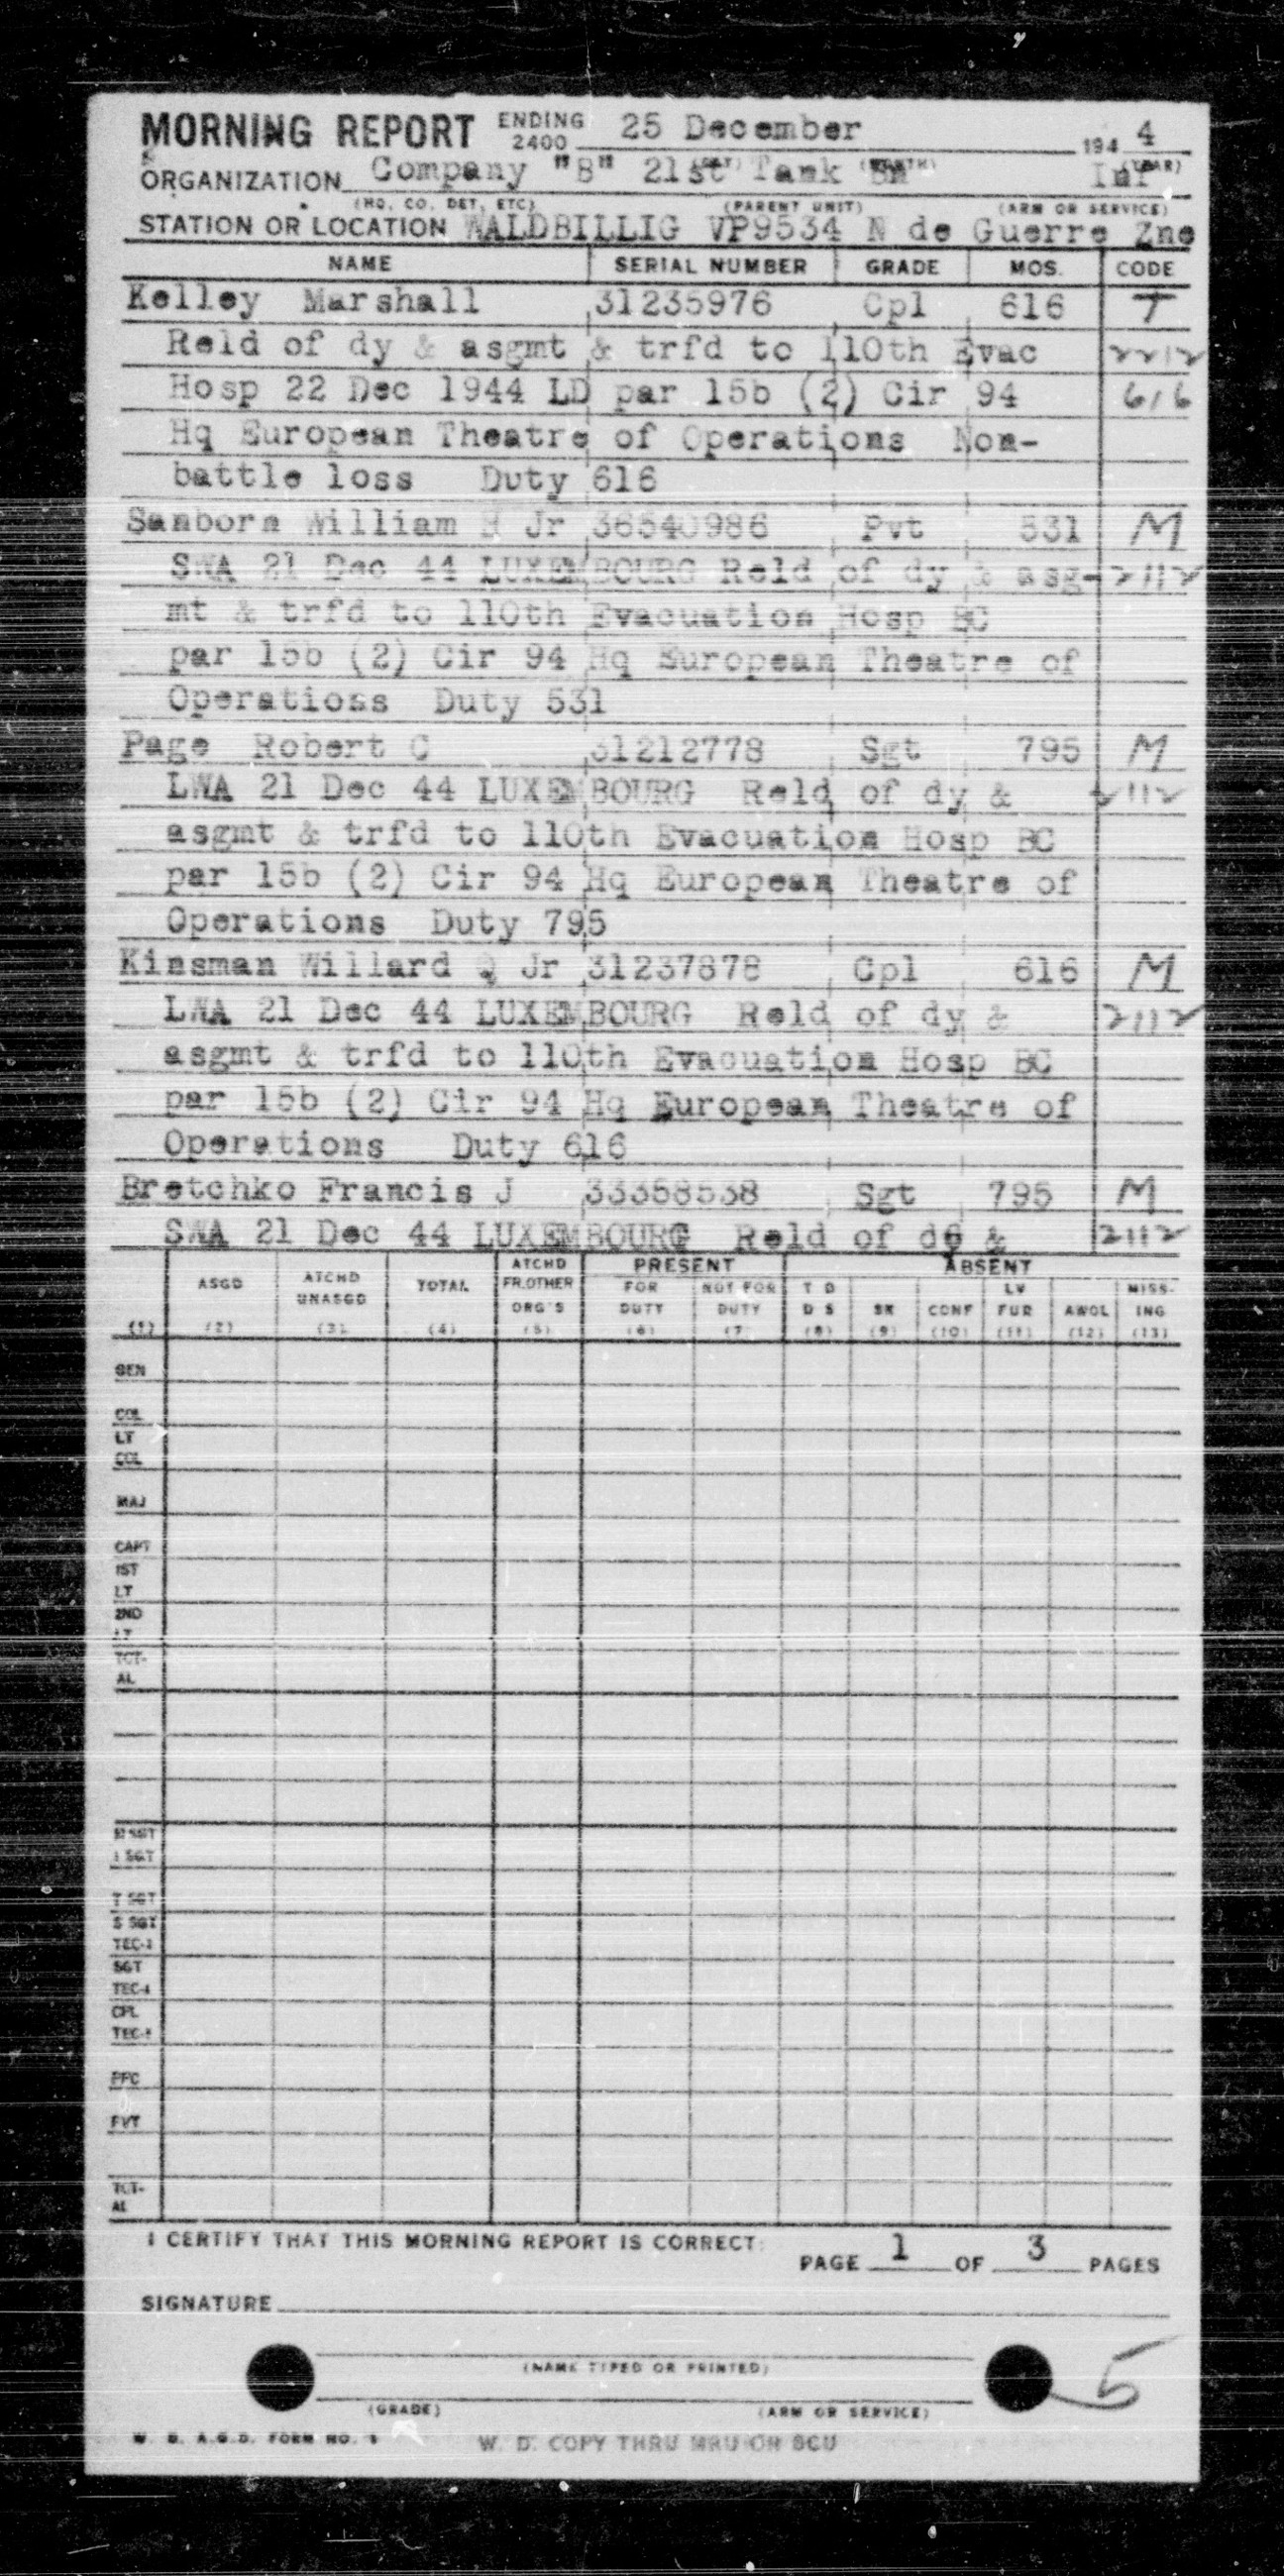 MORNING REPORT ENDING 2400 25 December 194 4
ORGANIZATION Company "B" 21st Tank Bn Inf
(HQ, CO, DET, ETC) (PARENT UNIT) (ARM OR SERVICE)
STATION OR LOCATION WALDBILLIG VP9534 N de Guerre Zne
NAME SERIAL NUMBER GRADE MOS. CODE
Kelley Marshall 31235976 Cpl 616 T
Reld of dy & asgmt & trfd to 110th Evac 2212
Hosp 22 Dec 1944 LD par 15b (2) Cir 94 616
Hq European Theatre of Operations Non-
battle loss Duty 616
Sanborn William Jr 36540986 Pvt 531 M
SWA 21 Dec 44 LUXEMBOURG Reld of dy & asg- 2112
mt & trfd to 110th Evacuation Hosp BC
par 15b (2) Cir 94 Hq European Theatre of
Operations Duty 531
Page Robert C 31212778 Sgt 795 M
LWA 21 Dec 44 LUXEMBOURG Reld of dy & 2112
asgmt & trfd to 110th Evacuation Hosp BC
par 15b (2) Cir 94 Hq European Theatre of
Operations Duty 795
Kinsman Willard Q Jr 31237878 Cpl 616 M
LWA 21 Dec 44 LUXEMBOURG Reld of dy & 2112
asgmt & trfd to 110th Evacuation Hosp BC
par 15b (2) Cir 94 Hq European Theatre of
Operations Duty 616
Bretchko Francis J 33358538 Sgt 795 M
SWA 21 Dec 44 LUXEMBOURG Reld of dy & 2112
ATCHD PRESENT ABSENT
ASGD ATCHD UNASGD TOTAL FR.OTHER ORG'S FOR DUTY NOT FOR DUTY T D D S SK CONF LV FUR AWOL MISS-ING
(1) (2) (3) (4) (5) (6) (7) (8) (9) (10) (11) (12) (13)
GEN
COL
LT
COL
MAJ
CAPT
1ST
LT
2ND
LT
TOT-
AL
M SGT
1 SGT
T SGT
S SGT
TEC-3
SGT
TEC-4
CPL
TEC-5
PFC
PVT
TOT-
AL
I CERTIFY THAT THIS MORNING REPORT IS CORRECT:
PAGE 1 OF 3 PAGES
SIGNATURE
(NAME TYPED OR PRINTED)
5
(GRADE) (ARM OR SERVICE)
W. D. A.G.D. FORM NO. 1 W. D. COPY THRU MRU OR SCU